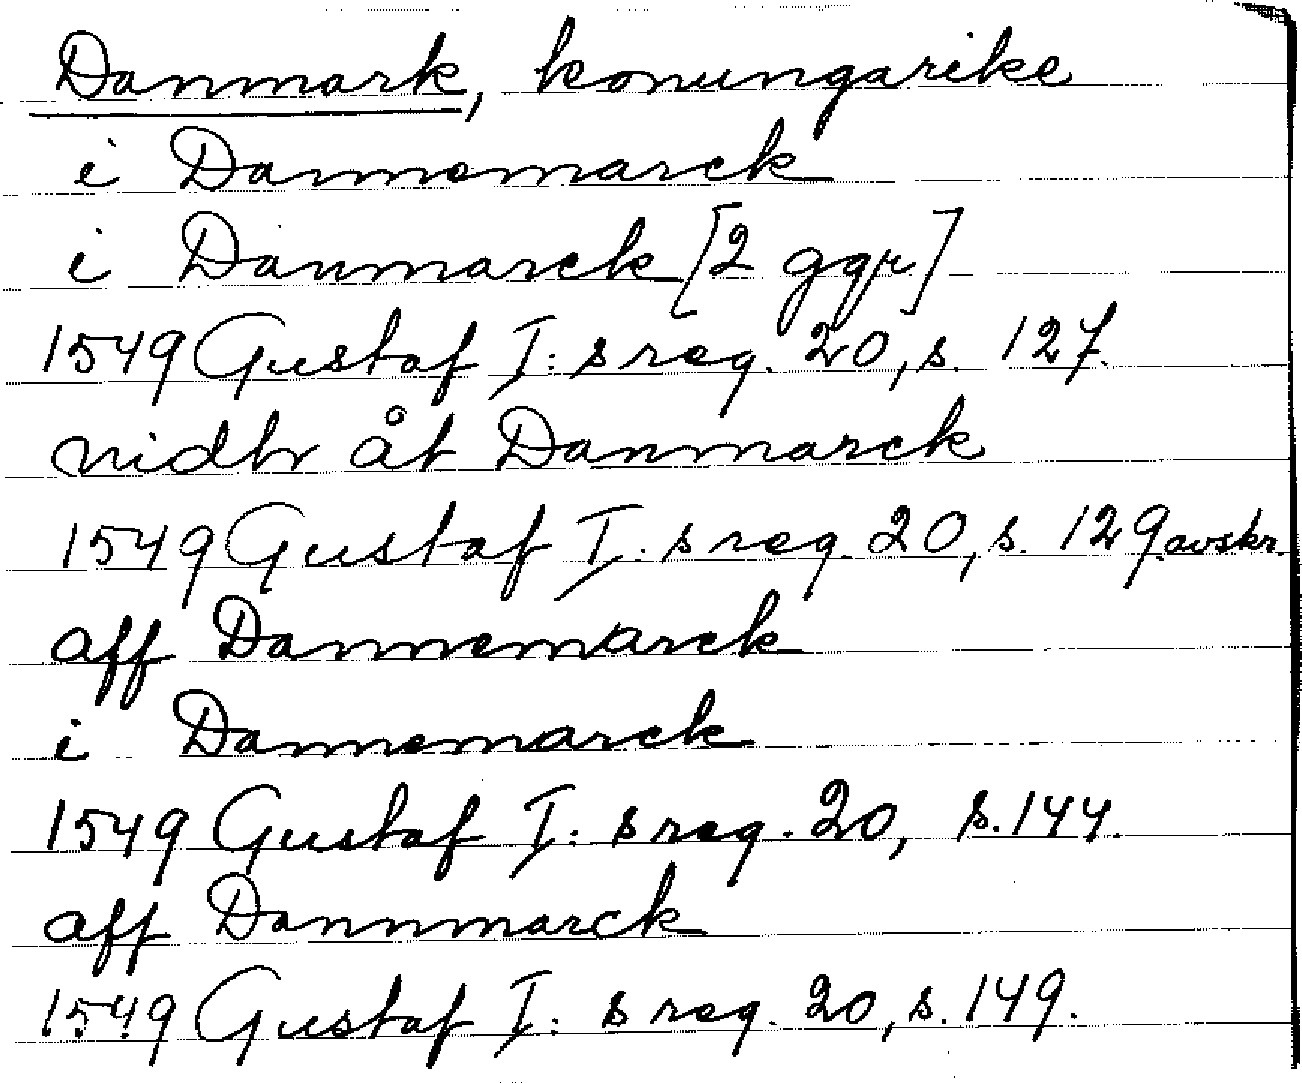 Danmark, konungarike
i Dannemarck
i Danmarck [2 ggr]
1549 Gustaf I: s reg. 20, s. 127.
nidhr åt Danmarck
1549 Gustaf I: s reg. 20, s. 129. avskr.
aff Dannemarck
i Dannemarck
1549 Gustaf I: s reg. 20, s. 144.
aff Dannmarck
1549 Gustaf I: s reg. 20, s. 149.